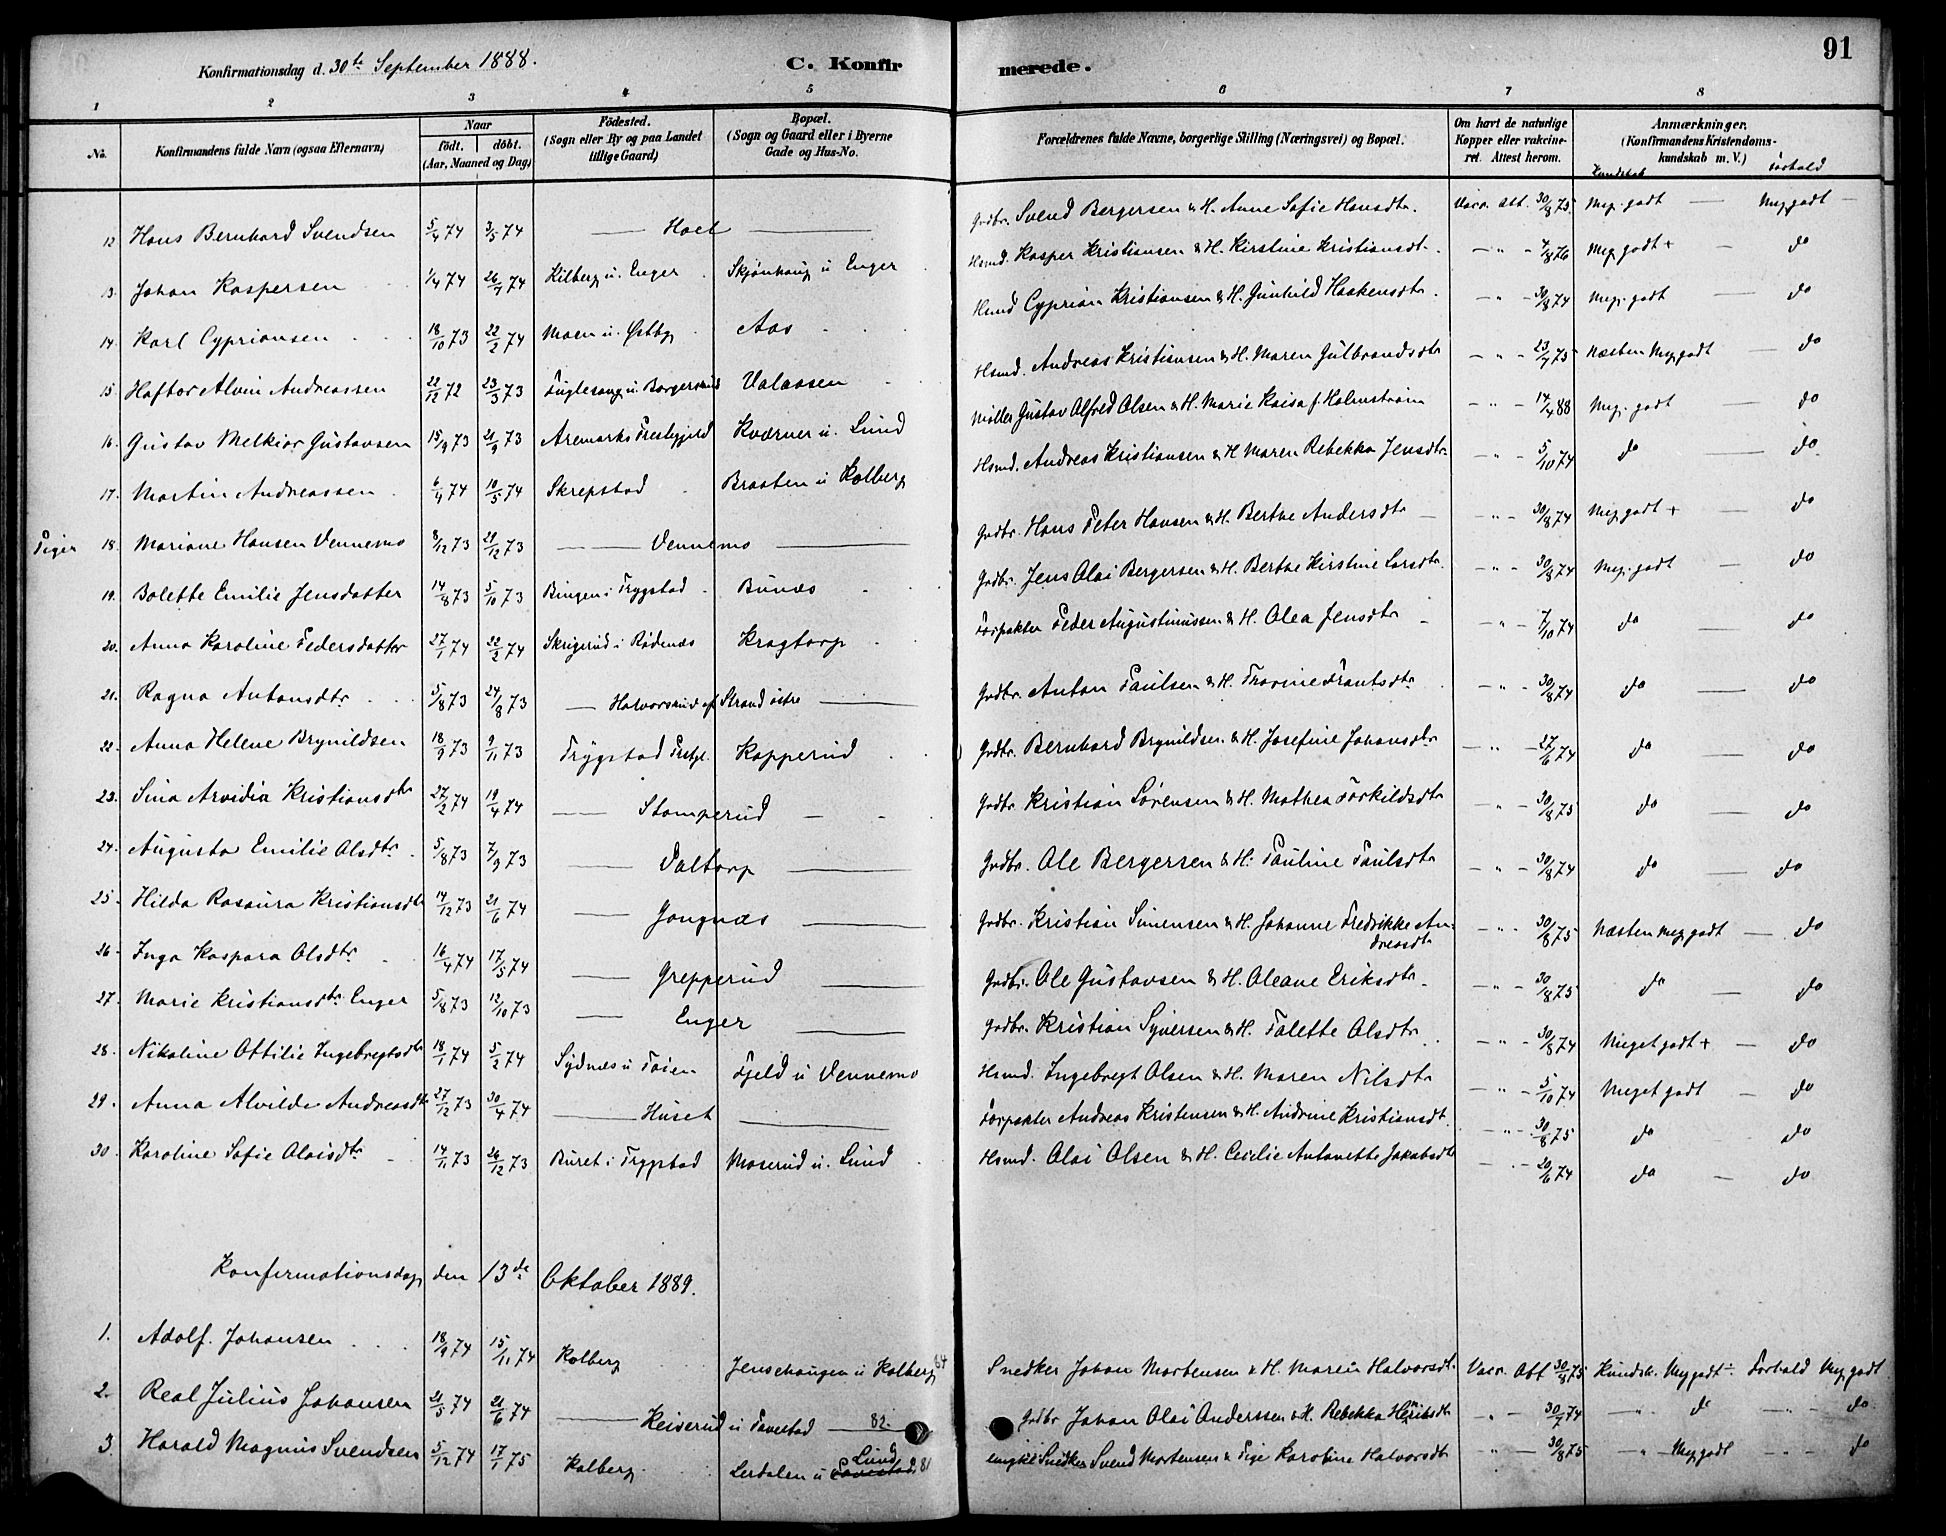 Konfirmationsdag d. 30te September 1888. C. Konfirmerede. 91
1 2 3 4 5 6 7 8
No. Konfirmandens fulde Navn (ogsaa Efternavn) Naar födt. döbt. (Aar, Maaned og Dag) Födested. (Sogn eller By og paa Landet tillige Gaard) Bopæl. (Sogn og Gaard eller i Byerne Gade og Hus-No. Forældrenes fulde Navne, borgerlige Stilling (Næringsvei) og Bopæl. Om havt de naturlige Kopper eller vakcineret. Attest herom. Anmærkninger. (Konfirmandens Kristendomskundskab m. V.) Kundskab Forhold
12 Hans Bernhard Svendsen 5/4 74 3/5 74 — Hoel — Grdbr. Svend Bergersen & H. Anne Sofie Hansdtr. Vacc. att. 30/8 75. Meg. godt — Meg godt —
13. Johan Kaspersen 1/4 74 26/7 74 Kilberg u. Enger Skjønhaug u Enger Hsmd. Kasper Kristiansen & H. Kirstine Kristiansdt. — " — 4/8 76 Meg godt + — do
14. Karl Cypriansen 18/10 73 22/2 74 Moen u. Østby Aas Hsmd Cyprian Kristiansen & H. Gunhild Haakensdtr. — " — 30/8 74 Meg. godt — do
15. Haftor Alvin Andreassen 22/12 72 23/3 73 Fuglesang u. Borgersrud Valaasen Hsmd. Andreas Kristiansen & H. Maren Gulbrandsdtr — " — 23/7 75 Næsten Meg godt — do
16. Gustav Melkior Gustavsen 15/9 73 21/9 73 Aremarks Prestegjeld Kværner u. Lund Møller Gustav Alfred Olsen & H. Marie Kaisa f. Holmstrøm — " — 14/4 88 Meg. godt — do
17. Martin Andreassen 6/4 74 10/5 74 Skrepstad Braaten u Kolberg Hsmd. Andreas Kristiansen & H Maren Rebekka Jensdtr — " — 5/10 74 do — do
Piger 18. Mariane Hansen Vennemo 8/12 73 21/12 73 — Vennemo — Grdbr. Hans Peter Hansen & H. Berthe Andersdtr — " — 30/8 74 Meg godt + — do
19. Bolette Emilie Jensdatter 14/8 73 5/10 73 Bingen i Trygstad Bunæs Grdbr. Jens Olai Bergersen & H. Berthe Kirstine Larsdtr. — " — 30/8 74 Meg. godt — do
20. Anna Karoline Pedersdatter 27/1 74 22/2 74 Skrigerud i Rødenæs Kragtorp Forpakter Peder Augustinussen & H. Olea Jensdtr — " — 7/10 74 do — do
21. Ragna Antonsdtr 5/8 73 24/8 73 — Halvorsrud af Strand østre — Grdbr. Anton Paulsen & H. Trorine Frantsdtr — " — 30/8 74 do — do
22. Anna Helene Brynildsen 18/9 73 9/11 73 Trygstad Prstgl. Kopperud Grdbr. Bernhard Brynildsen & H. Josefine Johansdtr — " — 27/6 74 do — do
23. Sina Arvidia Kristiansdtr 27/2 74 19/4 74 — Stomperud — Grdbr. Kristian Sørensen & H. Mathea Torkildsdtr — " — 30/8 75 do — do
24. Augusta Emilie Olsdtr. 5/8 73 7/9 73 — Valtorp — Grdbr. Ole Bergersen & H. Pauline Paulsdtr — " — 30/8 74 do — do
25. Hilda Rosaura Kristiansdtr 14/12 73 21/6 74 — Gangnæs — Grdbr. Kristian Simensen & H. Johanne Fredrikke Andreasdtr — " — 30/8 75 Næsten meg godt — do
26. Inga Kaspara Olsdtr 16/4 74 17/5 74 — Grepperud — Grdbr. Ole Gustavsen & H. Oleane Eriksdtr — " — 30/8 75 do — do
27. Marie Kristiansdtr Enger 5/8 73 12/10 73 — Enger — Grdbr. Kristian Syversen & H. Talette Olsdtr — " — 30/8 74 Meget godt + — do
28. Nikoline Ottilie Ingebregtsdtr 18/1 74 5/2 74 Sydnæs u Tøien Fjeld u Vennemo Hsmd. Ingebregt Olsen & H. Maren Nilsdtr — " — 5/10 74 Meget godt — do
29. Anna Alvilde Andreasdtr 27/12 73 30/4 74 — Huset — Forpakter Andreas Kristensen & H. Andrine Kristiansdt. — " — 30/8 75 do do
30. Karoline Sofie Olaisdtr 14/11 73 26/12 73 Buret i Trygstad Maserud u. Lund Hsmd. Olai Olsen & H. Cecilie Antonette Jakobsdtr — " — 20/6 74 do — do
Konfirmationsdag den 13de Oktober 1889.
1. Adolf Johansen 18/9 74 15/11 74 Kolberg Jenshaugen u Kolberg 84 Snedker Johan Mortensen & H. Maren Halvorsdt. Vacc. Att 30/8 75 Kundsk. Meg godt ÷ Forhold Meg godt
2. Real Julius Johansen 21/5 74 21/6 74 — Heiverud u Tavestad — 82. Grdbr Johan Olai Anderssen & H. Rebekka Henriksdtr — " — 30/7 74 — " — do — " — do
3. Harald Magnus Svendsen 5/12 74 17/1 75 Kolberg Lerdalen u Lund Tavestad 81 Snedker Svend Mortensen & Pige Karoline Halvorsdtr " — 30/8 75 — " — Meg godt — " — do